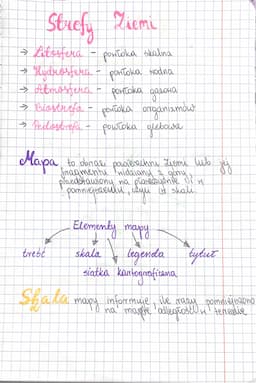 Strefy Ziemi
→ Litosfera - powłoka skalna
→ Hydrosfera - powłoka wodna
→ Atmosfera - powłoka gazowa
→ Biosfera - powłoka organizmów
→ Pedosfera - powłoka glebowa
Mapa to obraz powierzchni Ziemi lub jej
fragmentu widziany z góry,
przedstawiony na płaszczyźnie i w
pomniejszeniu, czyli w skali
Elementy mapy
treść skala legenda tytuł
siatka kartograficzna
Skala mapy informuje, ile razy pomniejszono
na mapie odległości w terenie